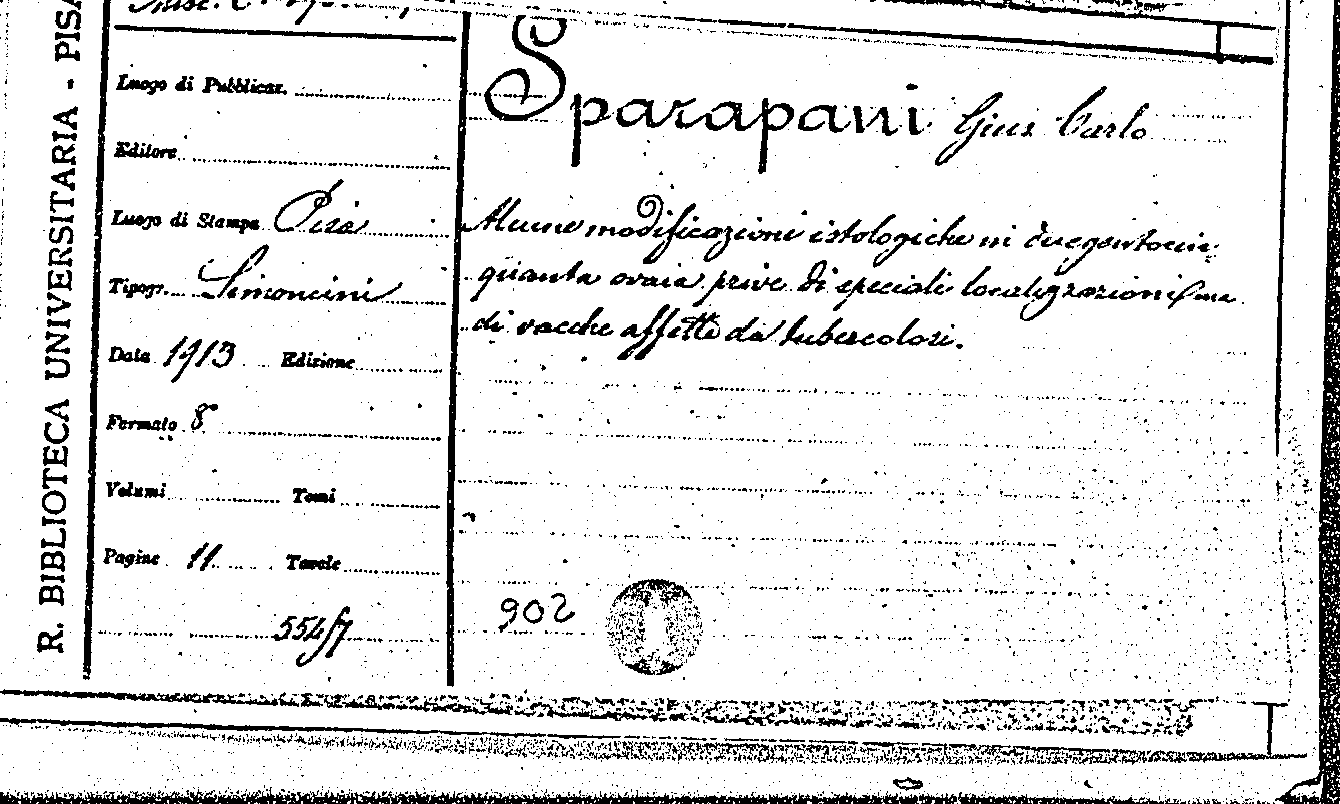 Misc.
R. BIBLIOTECA UNIVERSITARIA - PISA
Luogo di Pubblicaz.
Editore
Luogo di Stampa Pisa
Tipogr. Simoncini
Data 1913 Edizione
Formato 8
Volumi Tomi
Pagine 11 Tavole
Sparapani Gius Carlo
Alcune modificazioni istologiche in duegentocin-
quanta ovaia prive di speciali localizzazioni
di vacche affette da tubercolosi.
902